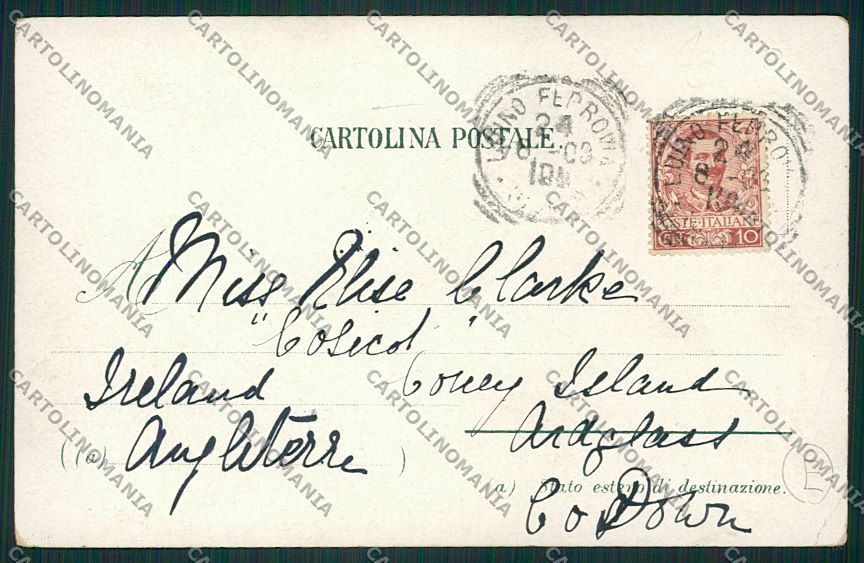 CARTOLINA POSTALE.
LUINO FERROVIA
24
8 - 03
LUINO FERROV
24
8
POSTE ITALIANE
10
A Miss Elise Clarke
"Cosicot"
Ireland Coney Island
Angleterre Ardglass
(a)
(a) Stato estero di destinazione.
Co Down
L
CARTOLINOMANIA